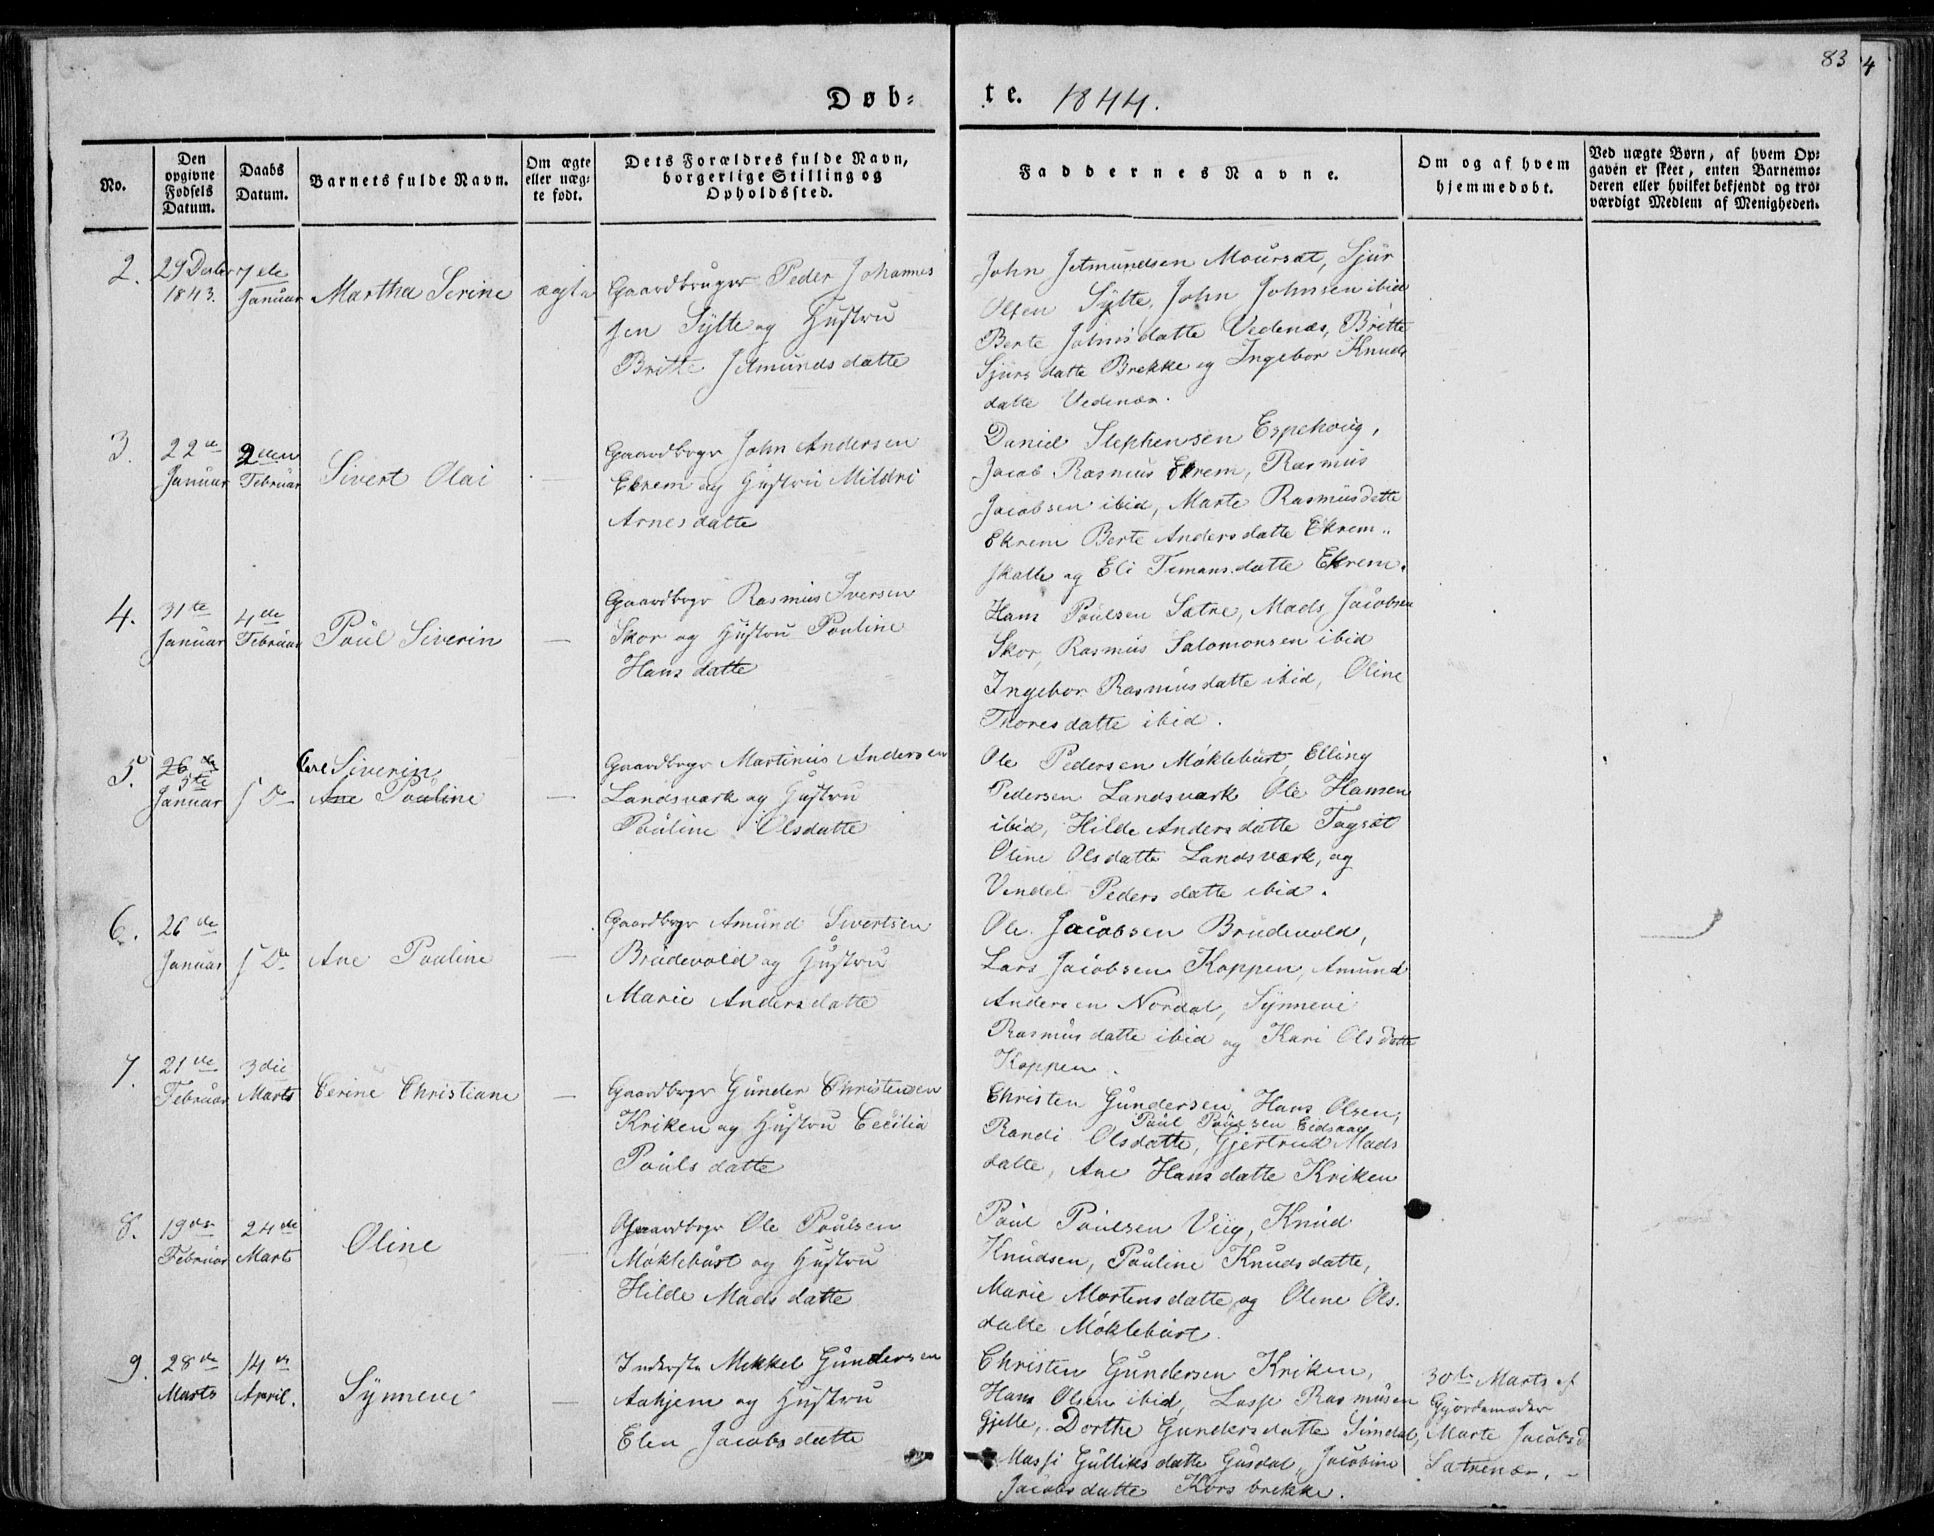 83
4
Døb- te. 1844.
No.
Den opgivne Fødsels Datum.
Daabs Datum.
Barnets fulde Navn.
Om ægte eller uæg-te født.
Dets Forældres fulde Navn, borgerlige Stilling og Opholdssted.
Faddernes Navne.
Om og af hvem hjemmedøbt.
Ved uægte Børn, af hvem Op-gaven er skeet, enten Barnemo-deren eller hvilket bekjendt og tro-værdigt Medlem af Menigheden.
2.
29 Decbr
1843.
7de
Januar
Martha Serine
ægte
Gaardbruger Peder Johannes
sen Sylte og Hustru
Britte Jetmunds datte
John Jetmundsen Moursæt, Sjur
Olsen Sylte, John Johnsen ibid
Berte Johnsdatte Vedenæs, Britte
Sjurs datte Brekke og Ingebor Knuds
datte Vedenæs.
3.
22de
Januar
2den
Februar
Sivert Olai
—
Gaardbrgr John Andersen
Ekrem og Hustru Mildri
Arnes datte
Daniel Stephensen Espehoug,
Jacob Rasmus Ekrem, Rasmus
Jacobsen ibid, Marte Rasmusdatte
Ekrem Berte Anders datte Ekrem-
skatte og Eli Timans datte Ekrem.
4.
31te
Januar
4de
Februar
Poul Siverin
—
Gaardbrgr Rasmus Iversen
Skor og Hustru Pouline
Hans datte
Hans Poulsen Sætre, Mads Jacobsen
Skor, Rasmus Salomonsen ibid
Ingebor Rasmusdatte ibid, Oline
Thores datte ibid.
5.
26de
5te
Januar
s D
Carl Siverin
Ane Pouline
—
Gaardbrgr Martinus Andersen
Landsværk og Hustru
Pouline Olsdatte
Ole Pedersen Møklebust, Elling
Pedersen Landsværk Ole Hansen
ibid, Hilde Anders datte Fagsæt
Oline Olsdatte Landsværk, og
Vendel Peders datte ibid.
6.
26de
Januar
s D
Ane Pouline
—
Gaardbrgr Amund Sivertsen
Brudevold og Hustru
Marie Andersdatte
Ole Jacobsen Brudevold,
Lars Jacobsen Koppen, Amund
Andersen Nordal, Synnevi
Rasmus datte ibid og Kari Olsdatte
Koppen.
7.
21de
Februar
3die
Marts
Cerine Christiane
—
Gaardbrgr Gunder Christensen
Kriken og Hustru Cecilia
Pouls datte
Christen Gundersen, Hans Olsen,
Poul Poulsen Eidsaa
Randi Olsdatte, Gjertrud Mads
datte, Ane Hans datte Kriken
8.
19de
Februar
24de
Marts
Oline
Gaardbrgr Ole Poulsen
Møklebust og Hustru
Hilde Mads datte
Poul Poulsen Viig, Knud
Knudsen, Pouline Knuds datte,
Marie Mortens datte og Oline Ols.
datte Møklebust.
9.
28de
Marts
14de
April.
Synnevi
—
Inderste Mikkel Gundersen
Aahjem og Hustru
Elen Jacobs datte
Christen Gundersen Kriken,
Hans Olsen ibid, Lasse Rasmusen
Gjelle, Dorthe Gundersdatte Simdal,
Massi Gulliks datte Gusdal, Jacobine
Jacobs datte Kors brekke.
30te Marts af
Gjordemoder
Marte Jacobsd
Sætrenæs.